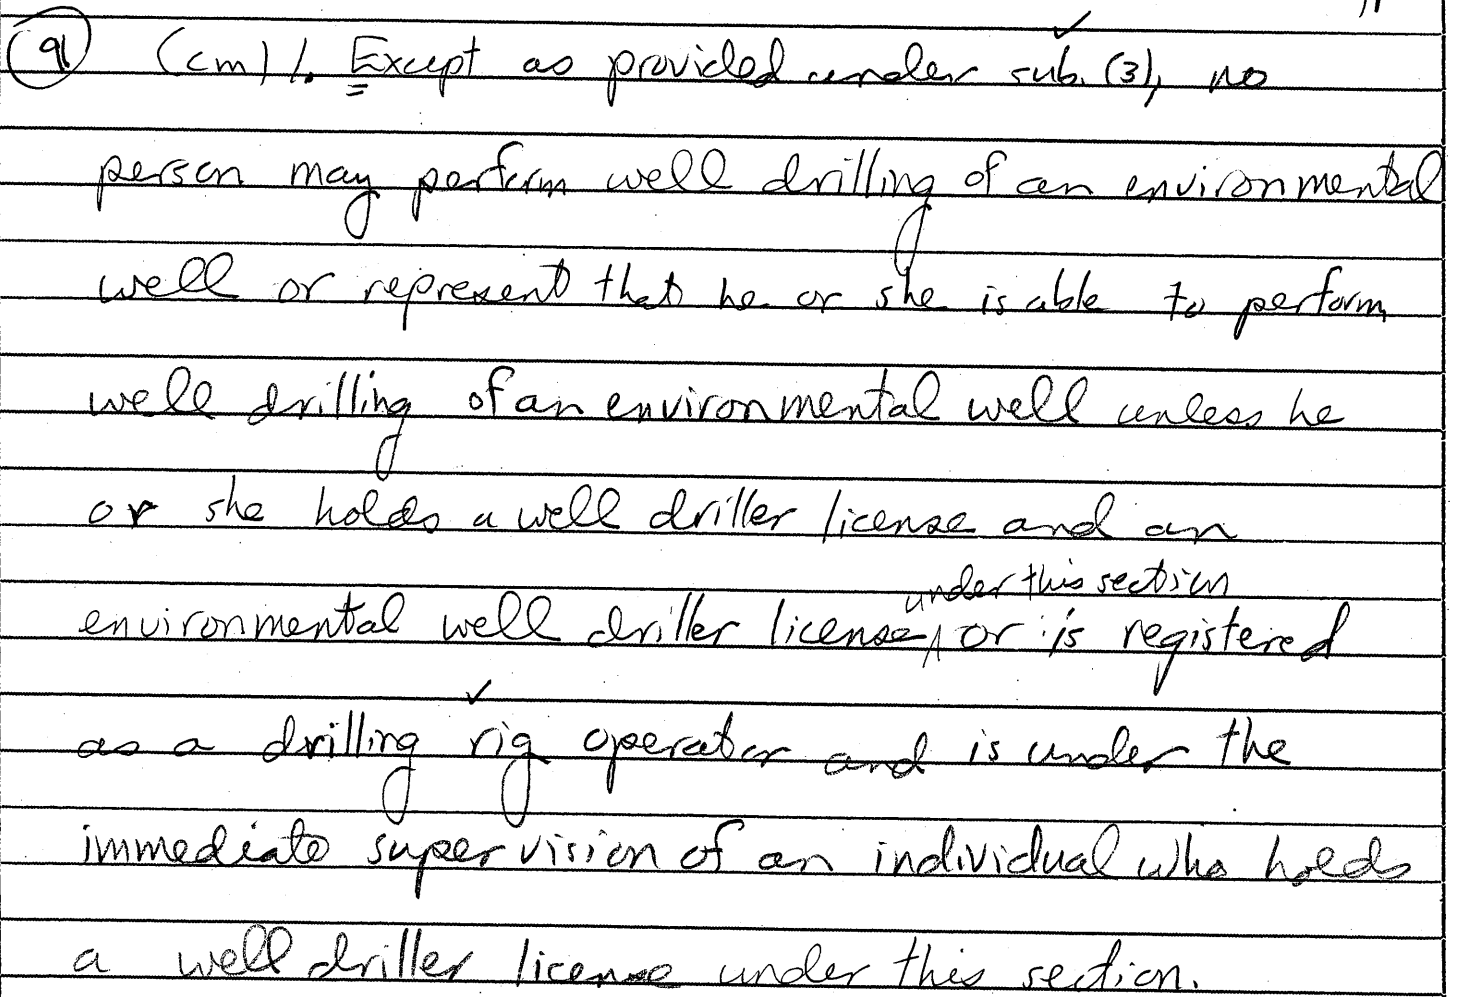 9 (cm) 1. Except as provided under sub. (3), no
person may perform well drilling of an environmental
well or represent that he or she is able to perform
well drilling of an environmental well unless he
or she holds a well driller license and an
under this section
environmental well driller license, or is registered
as a drilling rig operator and is under the
immediate supervision of an individual who holds
a well driller license under this section.